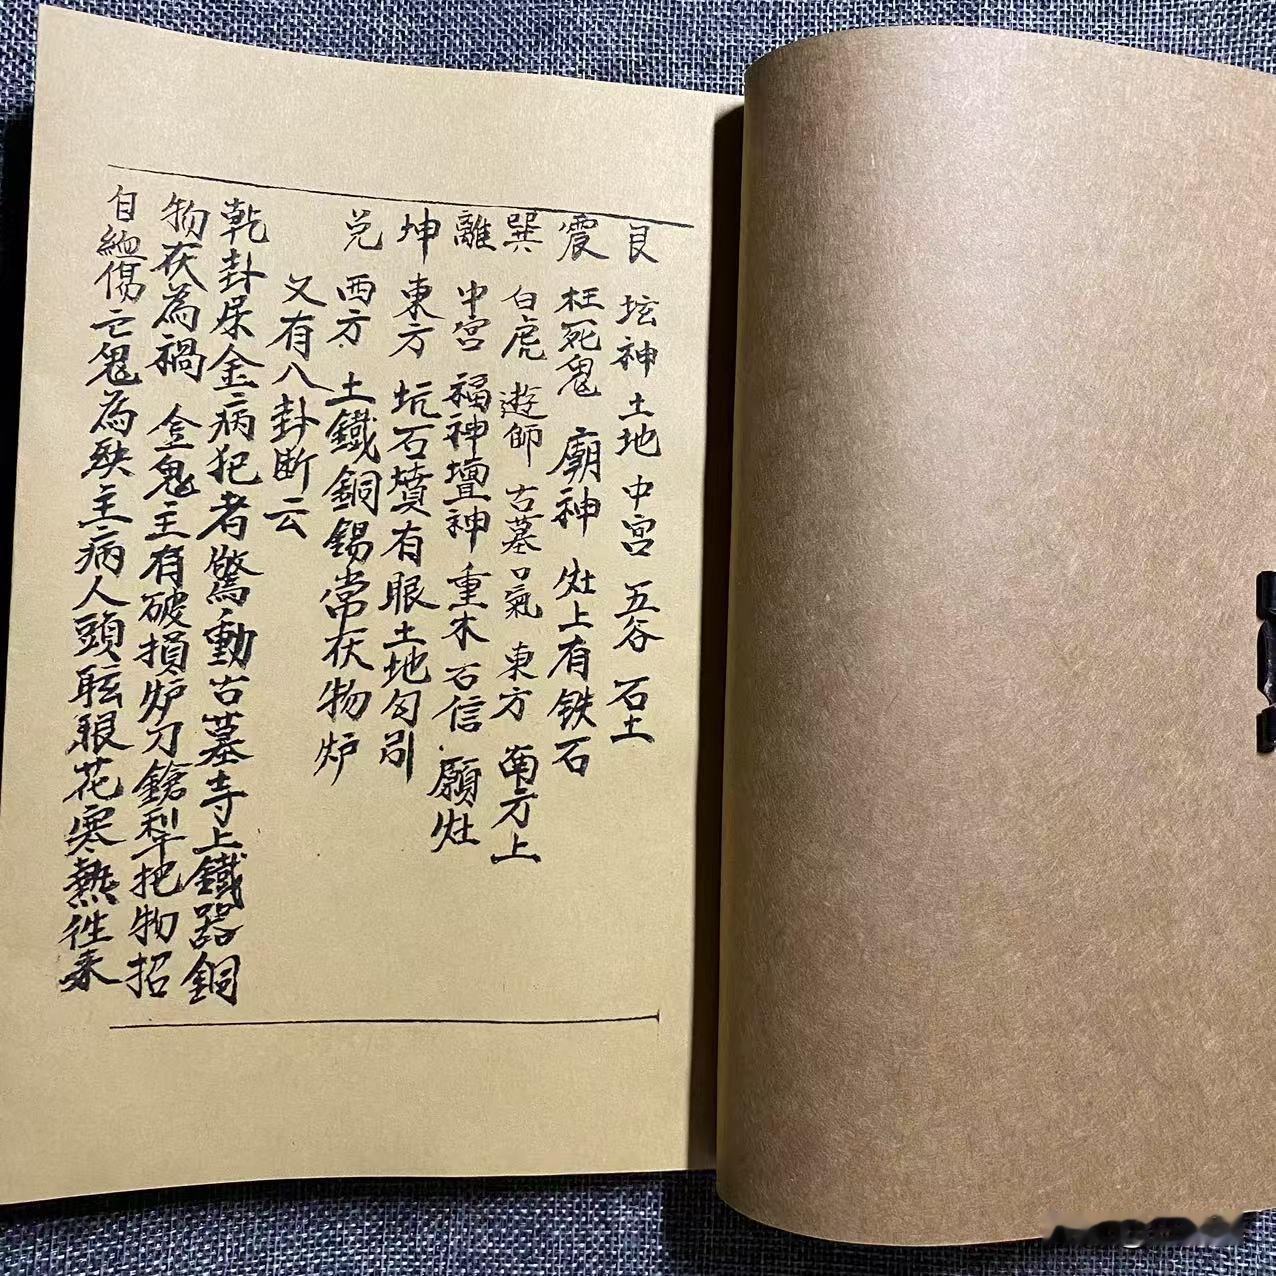 艮 坛神土地 中宫 五谷 石土
震 枉死鬼 廟神 灶上有铁石
巽 白虎 遊師 古墓口氣 東方 南方上
離 中宫 福神壇神重木石信 願灶
坤 東方 坑石墳有眼土地勾引
兑 西方 土鐵銅錫常茯物炉
又有八卦断云
乾卦屎金病犯者驚動古墓寺上鐵器銅
物茯為禍 金鬼主有破損炉刀鎗犁把物招
自縊傷亡鬼為殃主病人頭眩眼花寒熱往来